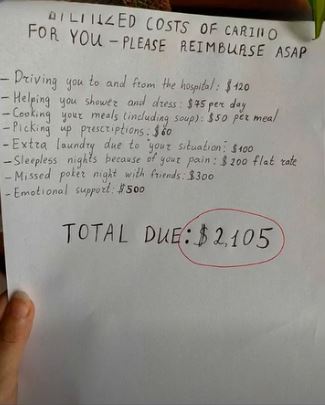 COSTS OF CARING
FOR YOU - PLEASE REIMBURSE ASAP
- Driving you to and from the hospital: $120
- Helping you shower and dress: $75 per day
- Cooking your meals (including soup): $50 per meal
- Picking up prescriptions: $60
- Extra laundry due to your situation: $100
- Sleepless nights because of your pain: $200 flat rate
- Missed poker night with friends: $300
- Emotional support: $500
TOTAL DUE: $2,105